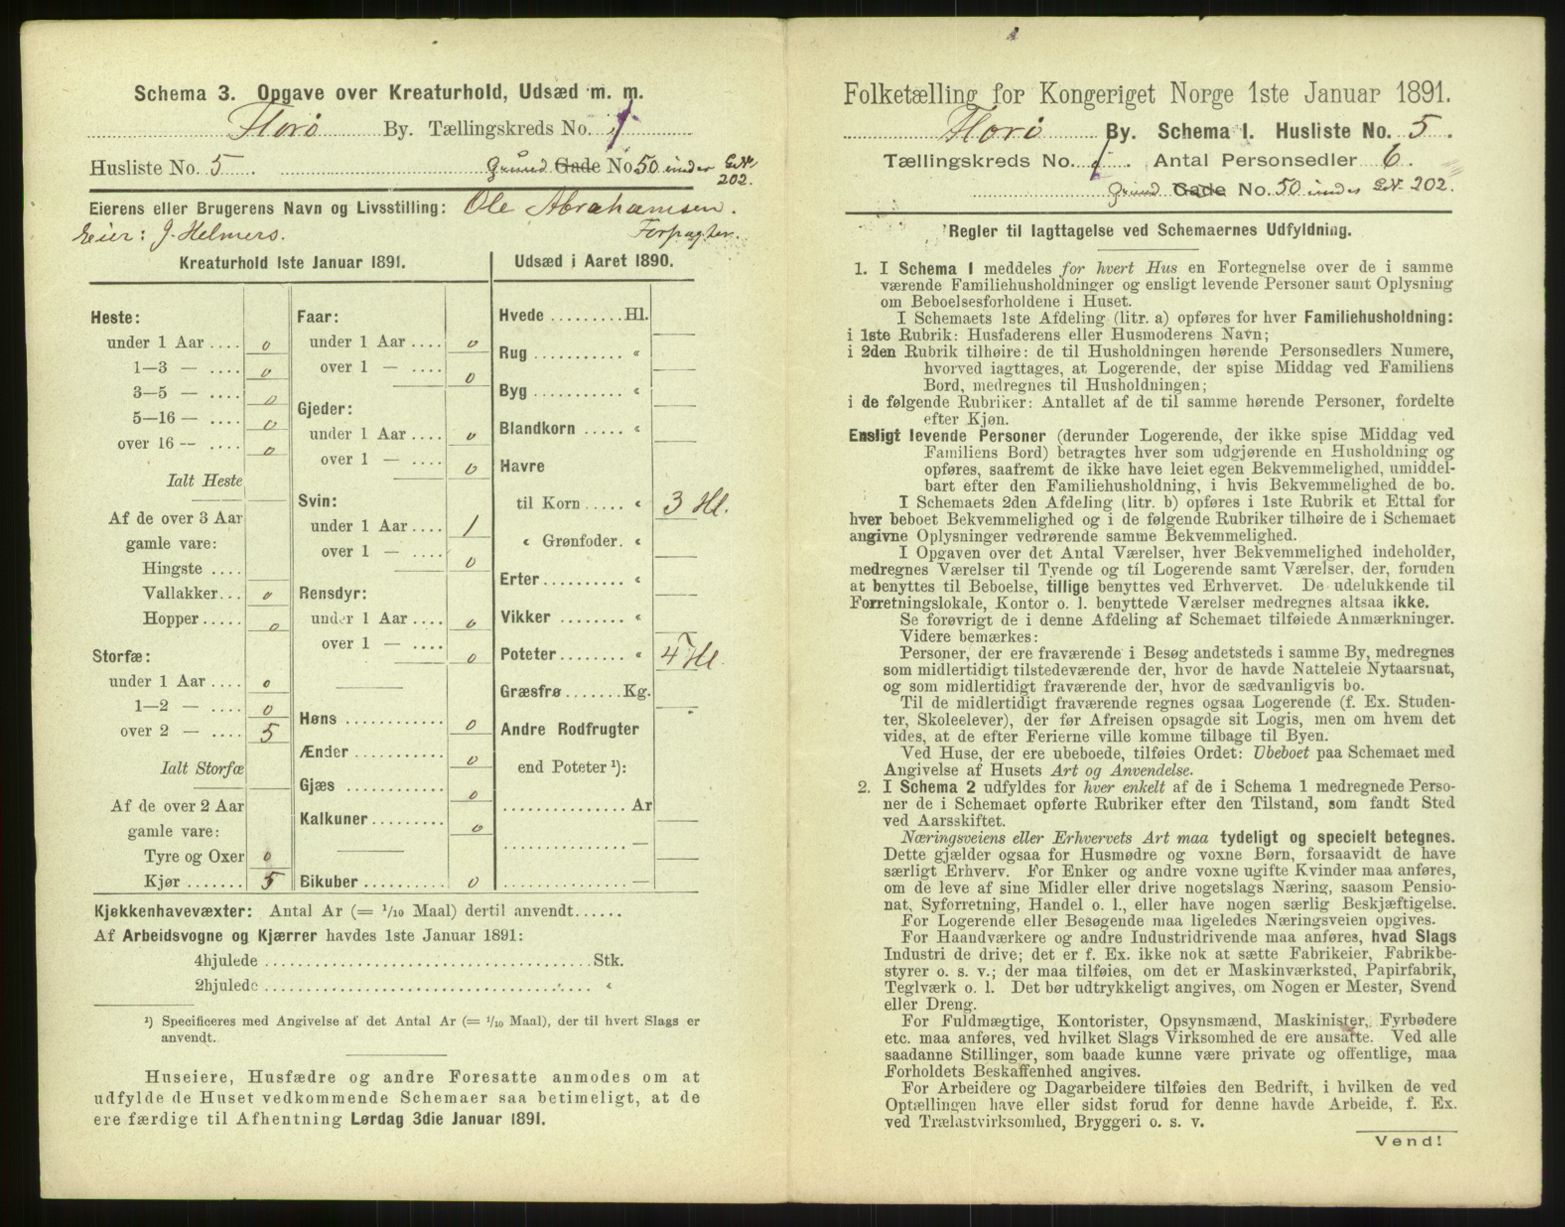 Schema 3. Opgave over Kreaturhold, Udsæd m. m.
Florø By. Tællingskreds No. 1
Husliste No. 5 Grund Gade No. 50 under G.N.
202.
Eierens eller Brugerens Navn og Livsstilling: Ole Abrahamsen.
Eier: J. Helmers. Forpagter.
Kreaturhold 1ste Januar 1891.
Heste:
under 1 Aar .... 0
1—3 — .... 0
3—5 — .... 0
5—16 — .... 0
over 16 — .... 0
Ialt Heste
Af de over 3 Aar
gamle vare:
Hingste ....
Vallakker... 0
Hopper ..... 0
Storfæ:
under 1 Aar .... 0
1—2 — .... 0
over 2 — .... 5
Ialt Storfæ
Af de over 2 Aar
gamle vare:
Tyre og Oxer 0
Kjør ....... 5
Faar:
under 1 Aar .... 0
over 1 — .... 0
Gjeder:
under 1 Aar .... 0
over 1 — .... 0
Svin:
under 1 Aar .... 1
over 1 — .... 0
Rensdyr:
under 1 Aar .... 0
over 1 — .... 0
Høns ............ 0
Ænder ........... 0
Gjæs ............ 0
Kalkuner ......... 0
Bikuber .......... 0
Udsæd i Aaret 1890.
Hvede ......... Hl.
Rug ........... "
Byg ........... "
Blandkorn ..... "
Havre
til Korn ..... " 3 Hl.
" Grønfoder. "
Erter .......... "
Vikker ........ "
Poteter ........ " 4 Hl.
Græsfrø ....... Kg.
Andre Rodfrugter
end Poteter ¹):
............... Ar
............... —
............... —
Kjøkkenhavevæxter: Antal Ar (= 1/10 Maal) dertil anvendt......
Af Arbeidsvogne og Kjærrer havdes 1ste Januar 1891:
4hjulede ........................................ Stk.
2hjulede ........................................ "
¹) Specificeres med Angivelse af det Antal Ar (= 1/10 Maal), der til hvert Slags er
anvendt.
Huseiere, Husfædre og andre Foresatte anmodes om at
udfylde de Huset vedkommende Schemaer saa betimeligt, at de
ere færdige til Afhentning Lørdag 3die Januar 1891.
Folketælling for Kongeriget Norge 1ste Januar 1891.
Florø By. Schema 1. Husliste No. 5.
Tællingskreds No. 1. Antal Personsedler 6.
Grund Gade No. 50 under G.N. 202.
Regler til Iagttagelse ved Schemaernes Udfyldning.
1. I Schema 1 meddeles for hvert Hus en Fortegnelse over de i samme
værende Familiehusholdninger og ensligt levende Personer samt Oplysning
om Beboelsesforholdene i Huset.
I Schemaets 1ste Afdeling (litr. a) opføres for hver Familiehusholdning:
i 1ste Rubrik: Husfaderens eller Husmoderens Navn;
i 2den Rubrik tilhøire: de til Husholdningen hørende Personsedlers Numere,
hvorved iagttages, at Logerende, der spise Middag ved Familiens
Bord, medregnes til Husholdningen;
i de følgende Rubriker: Antallet af de til samme hørende Personer, fordelte
efter Kjøn.
Ensligt levende Personer (derunder Logerende, der ikke spise Middag ved
Familiens Bord) betragtes hver som udgjørende en Husholdning og
opføres, saafremt de ikke have leiet egen Bekvemmelighed, umiddel-
bart efter den Familiehusholdning, i hvis Bekvemmelighed de bo.
I Schemaets 2den Afdeling (litr. b) opføres i 1ste Rubrik et Ettal for
hver beboet Bekvemmelighed og i de følgende Rubriker tilhøire de i Schemaet
angivne Oplysninger vedrørende samme Bekvemmelighed.
I Opgaven over det Antal Værelser, hver Bekvemmelighed indeholder,
medregnes Værelser til Tyende og til Logerende samt Værelser, der, foruden
at benyttes til Beboelse, tillige benyttes ved Erhvervet. De udelukkende til
Forretningslokale, Kontor o. l. benyttede Værelser medregnes altsaa ikke.
Se forøvrigt de i denne Afdeling af Schemaet tilføiede Anmærkninger.
Videre bemærkes:
Personer, der ere fraværende i Besøg andetsteds i samme By, medregnes
som midlertidigt tilstedeværende der, hvor de havde Natteleie Nytaarsnat,
og som midlertidigt fraværende der, hvor de sædvanligvis bo.
Til de midlertidigt fraværende regnes ogsaa Logerende (f. Ex. Studen-
ter, Skoleelever), der før Afreisen opsagde sit Logis, men om hvem det
vides, at de efter Ferierne ville komme tilbage til Byen.
Ved Huse, der ere ubeboede, tilføies Ordet: Ubeboet paa Schemaet med
Angivelse af Husets Art og Anvendelse.
2. I Schema 2 udfyldes for hver enkelt af de i Schema 1 medregnede Perso-
ner de i Schemaet opførte Rubriker efter den Tilstand, som fandt Sted
ved Aarsskiftet.
Næringsveiens eller Erhvervets Art maa tydeligt og specielt betegnes.
Dette gjælder ogsaa for Husmødre og voxne Børn, forsaavidt de have
særligt Erhverv. For Enker og andre voxne ugifte Kvinder maa anføres,
om de leve af sine Midler eller drive nogetslags Næring, saasom Pensio-
nat, Syforretning, Handel o. l., eller have nogen særlig Beskjæftigelse.
For Logerende eller Besøgende maa ligeledes Næringsveien opgives.
For Haandværkere og andre Industridrivende maa anføres, hvad Slags
Industri de drive; det er f. Ex. ikke nok at sætte Fabrikeier, Fabrikbe-
styrer o. s. v.; der maa tilføies, om det er Maskinværksted, Papirfabrik,
Teglværk o. l. Det bør udtrykkeligt angives, om Nogen er Mester, Svend
eller Dreng.
For Fuldmægtige, Kontorister, Opsynsmænd, Maskinister, Fyrbødere
etc. maa anføres, ved hvilket Slags Virksomhed de ere ansatte. Ved alle
saadanne Stillinger, som baade kunne være private og offentlige, maa
Forholdets Beskaffenhed angives.
For Arbeidere og Dagarbeidere tilføies den Bedrift, i hvilken de ved
Optællingen have eller sidst forud for denne havde Arbeide, f. Ex.
ved Trælastvirksomhed, Bryggeri o. s. v.
Vend!